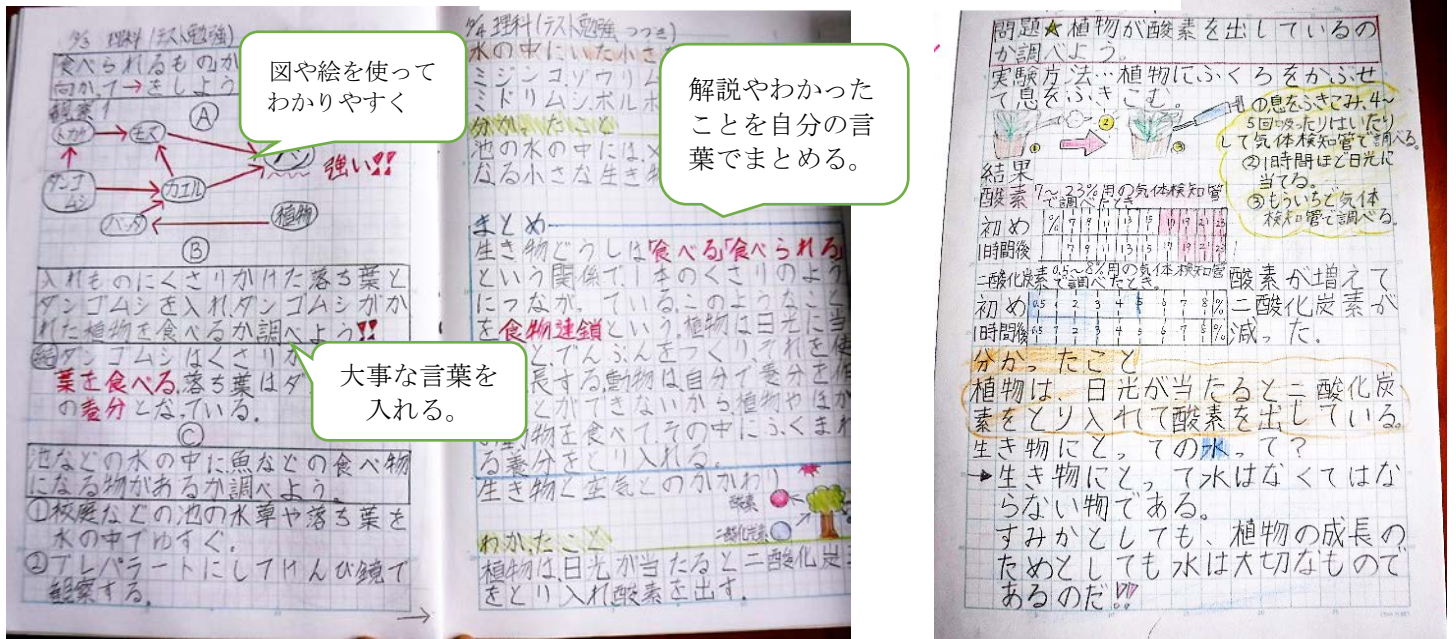 理科(テスト勉強)
食べられるもの,か
向か,て→をしよう
観察1
Ⓐ
トカゲ
モズ
強い!!
ダンゴ
ムシ
カエル
バッタ
植物
Ⓑ
入れものにくさりかけた落ち葉と
ダンゴムシを入れ,ダンゴムシがか
れた植物を食べるか調べよう!!
ダンゴムシはくさりか
葉を食べる,落ち葉はダ
の養分となっている。
Ⓒ
池などの水の中に魚などの食べ物
になる物があるか調べよう。
①校庭などの池の水草や落ち葉を
水の中でゆすぐ。
②プレパラートにしてけんび鏡で
観察する。
図や絵を使って
わかりやすく
大事な言葉を
入れる。
理科(テスト勉強つづき)
水の中にいた小さ
ミジンコ,ゾウリム
ミドリムシ,ボルボ
分かったこと
池の水の中には,メ
なる小さな生き物
まとめ
生き物どうしは「食べる」「食べられる」
という関係で,1本のくさりのよう
につながっている,このようなこと
を食物連鎖という,植物は日光に当
と,でんぷんをつくり,それを使
長する,動物は自分で養分を作
とができないから,植物やほか
物を食べて,その中にふくまれ
る養分をとり入れる。
生き物と空気とのかかわり
酸素
二酸化炭素
わかったこと
植物は,日光が当たると二酸化炭
をとり入れ酸素を出す。
解説やわかった
ことを自分の言
葉でまとめる。
問題★植物が酸素を出しているの
か調べよう。
実験方法…植物にふくろをかぶせ
て息をふきこむ。
①息をふきこみ,4~
5回吸ったりはいたり
して気体検知管で調べる。
②1時間ほど日光に
当てる。
③もういちど気体
検知管で調べる。
結果
酸素 7~23%用の気体検知管
で調べたとき
初め % 7 9 11 13 15 17 19 21 23
1時間後 7 9 11 13 15 17 19 21 23
二酸化炭素 0.5~8%用の気体検知管
で調べたとき。
初め 0.5 1 2 3 4 5 6 7 8 %
1時間後 0.5 1 2 3 4 5 6 7 8 %
酸素が増えて
二酸化炭素が
減った。
分かったこと
植物は、日光が当たると二酸化炭
素をとり入れて酸素を出している。
生き物にとっての水って?
→生き物にとって水はなくてはな
らない物である。
すみかとしても、植物の成長の
ためとしても水は大切なもので
あるのだ!!